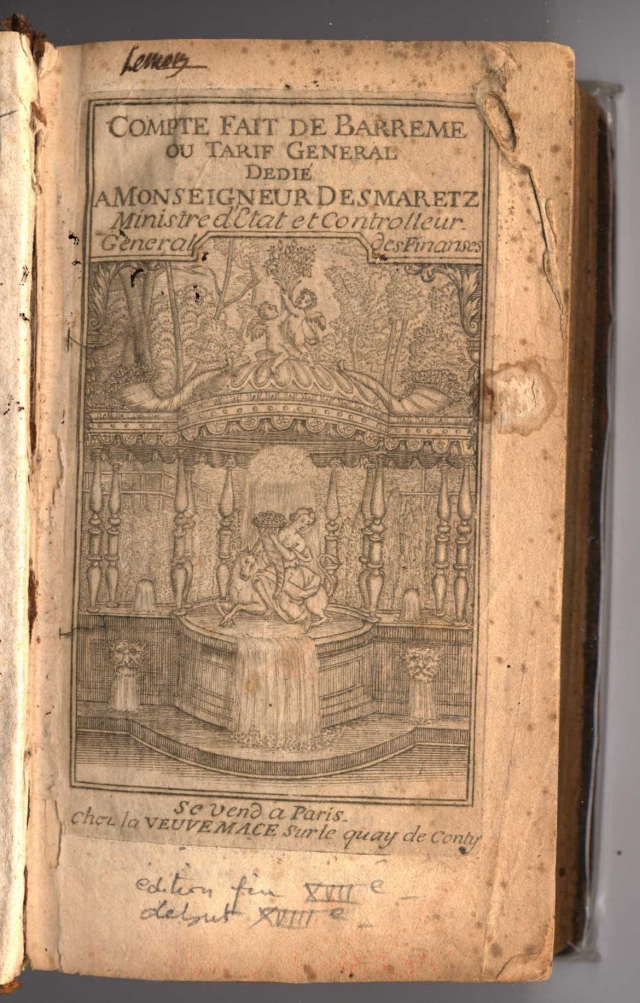 COMPTE FAIT DE BARREME
OU TARIF GENERAL
DEDIÉ
A MONSEIGNEUR DESMARETZ
Ministre d'Etat et Controlleur
General des Finanses
Se vend a Paris.
Chez la VEUVE MACE Sur le quay de Conty
édition fin XVIIe
début XVIIIe